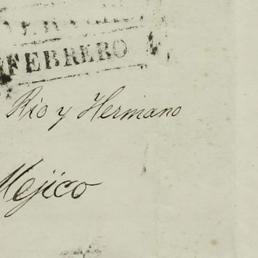 FEBRERO
Rio y Hermano
Mejico